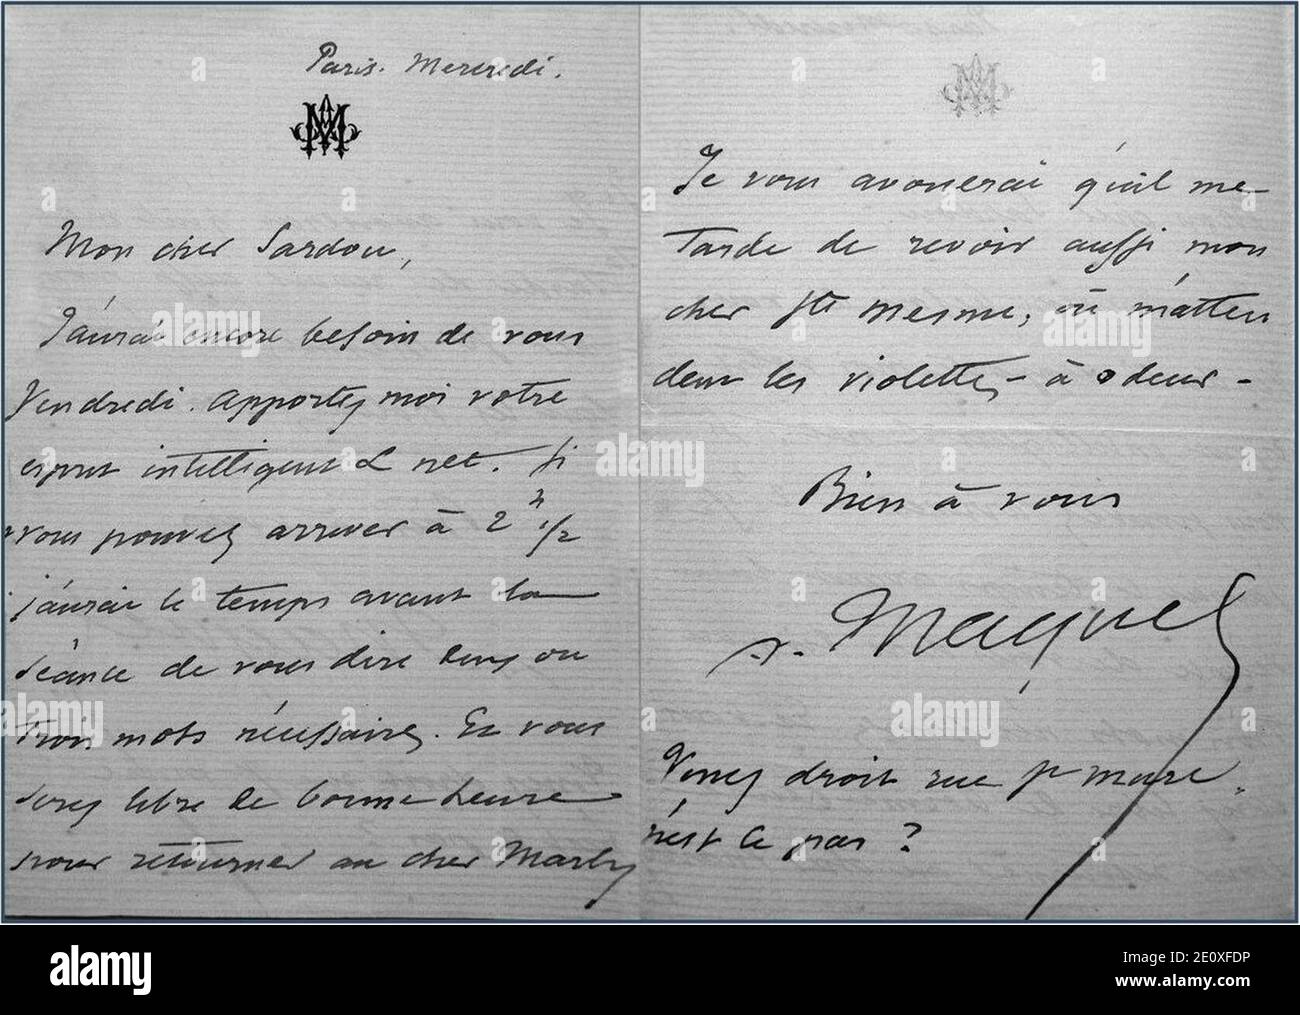 Paris. Mercredi.
AM
Mon cher Sardou,
J'aurai encore besoin de vous
Vendredi. Apportez moi votre
esprit intelligent & net. Si
vous pouvez arriver à 2 h 1/2
j'aurai le temps avant la
séance de vous dire deux ou
trois mots nécessaires. Et vous
serez libre de bonne heure
pour retourner au cher Marly
Je vous avouerai qu'il me
tarde de revoir aussi mon
cher Ste Mesme, où m'atten
dent les violettes - à odeur -
Bien à vous
A. Maquet
Venez droit rue
n'est ce pas ?
alamy
Image ID: 2E0XFDP
www.alamy.com